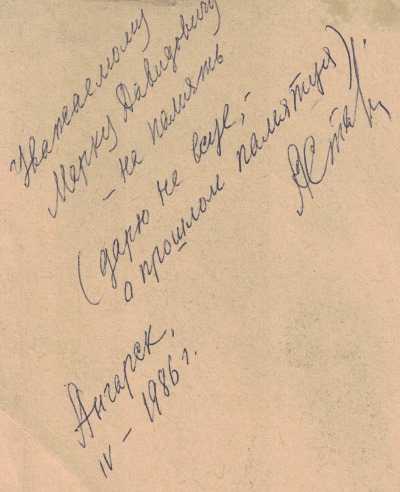 Уважаемому
Марку Давидовичу
– на память
(дарю не всуе, –
о прошлом памятуя)
Ангарск,
IV – 1986 г.